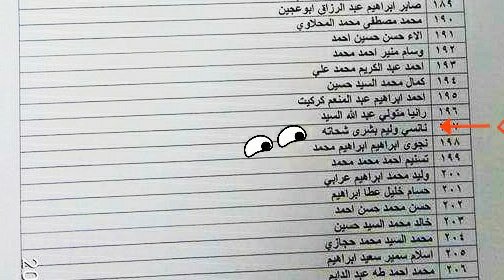 ١٨٩ صابر ابراهيم عبد الرزاق ابوعجين
١٩٠ محمد مصطفي محمد المحلاوي
١٩١ الاء حسن حسين احمد
١٩٢ وسام منير احمد محمد
١٩٣ احمد عبد الكريم محمد علي
١٩٤ كمال محمد السيد حسين
١٩٥ احمد ابراهيم عبد المنعم كركيت
١٩٦ رانيا متولي عبد الله السيد
نانسي وليم بشرى شحاته
١٩٨ نجوى ابراهيم ابراهيم محمد
١٩٩ تسنيم احمد محمد محمد
٢٠٠ وليد محمد ابراهيم عرابي
٢٠١ حسام خليل عطا ابراهيم
٢٠٢ حسن محمد حسن احمد
٢٠٣ خالد محمد السيد حسين
٢٠٤ محمد السيد محمد حجازي
٢٠٥ اسلام سمير سعيد ابراهيم
٢٠٦ محمد احمد طه عبد الدايم